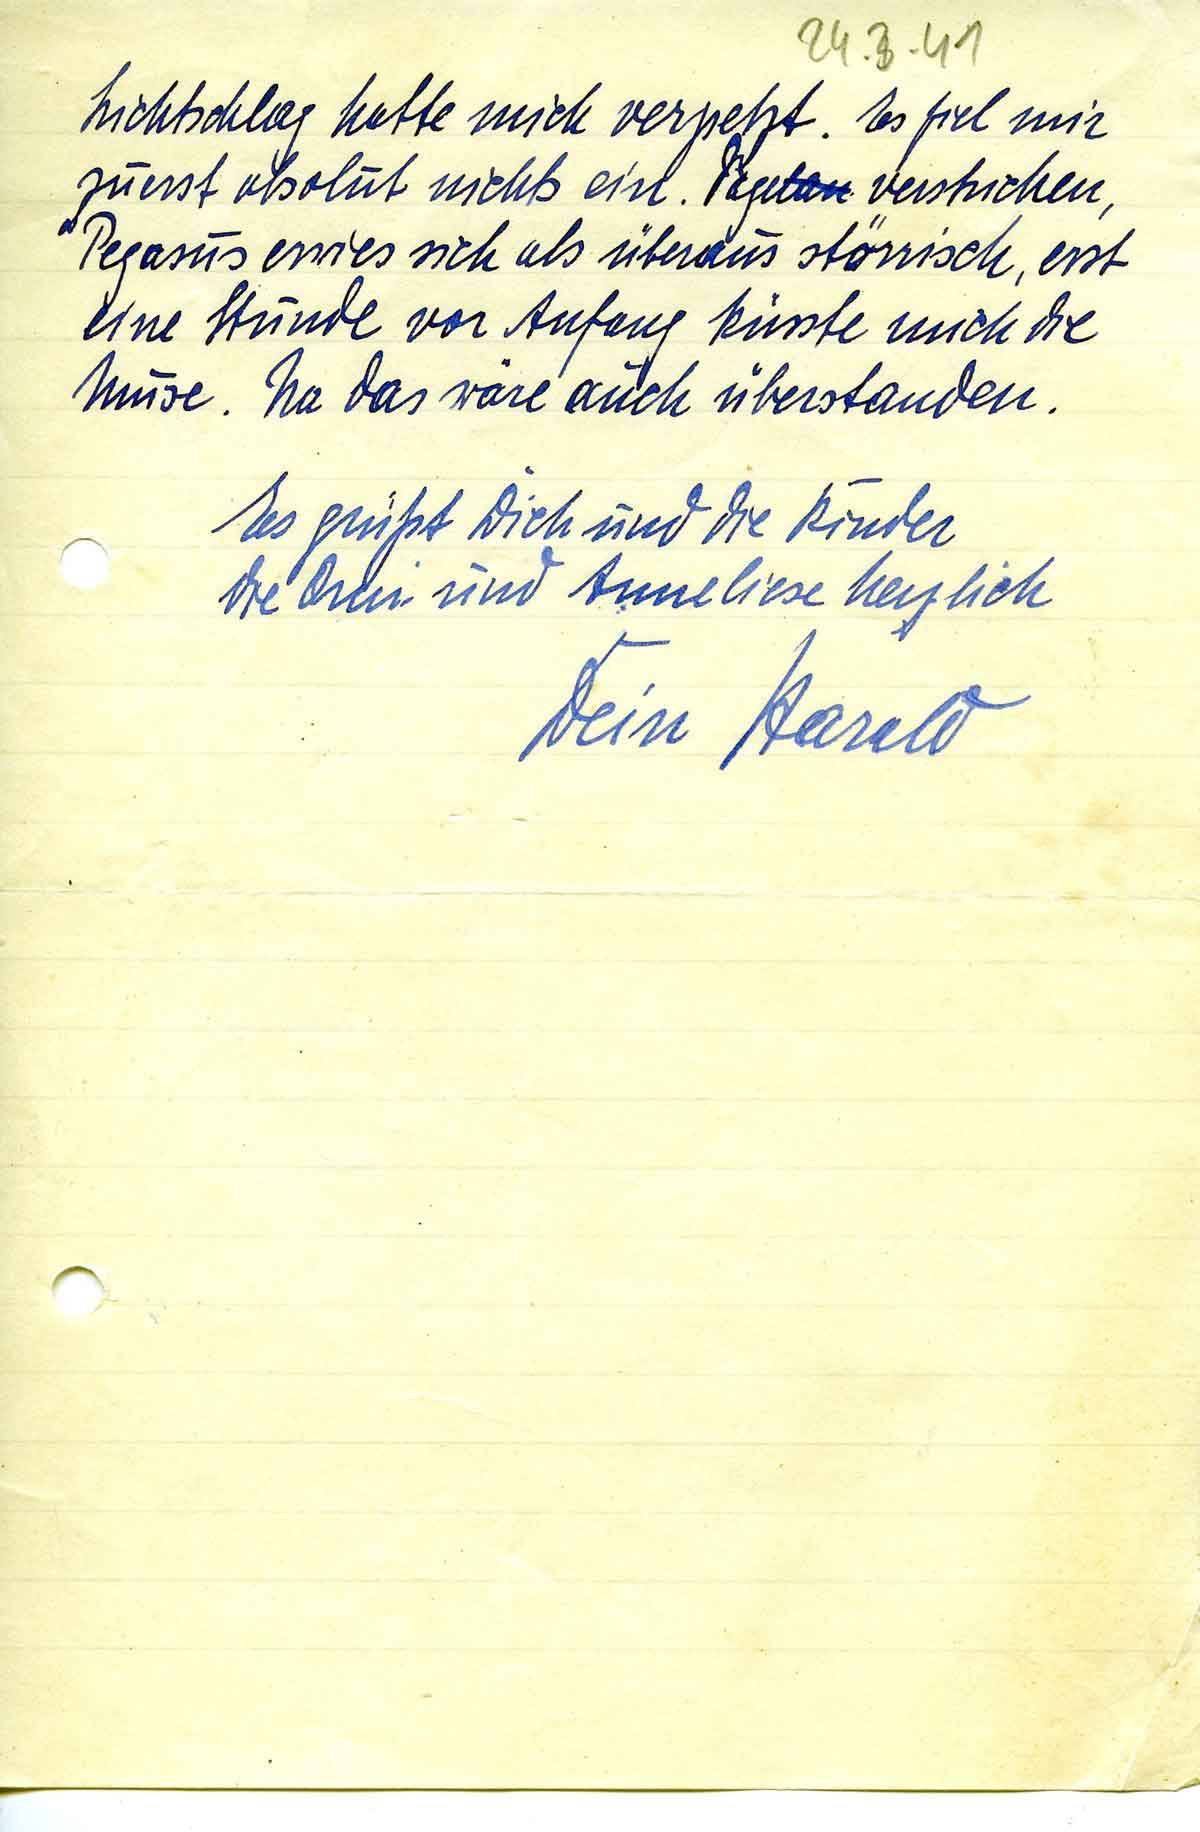 24.3.41
hatte mich verpetzt. Es fiel mir
zuerst absolut nichts ein. Tage verstrichen,
Pegasus erwies sich als überaus störrisch, erst
eine Stunde vor Anfang küsste mich die
Muse. Na das wäre auch überstanden.
Es grüßt Dich und die Kinder
die und Anneliese herzlich
Dein Harald